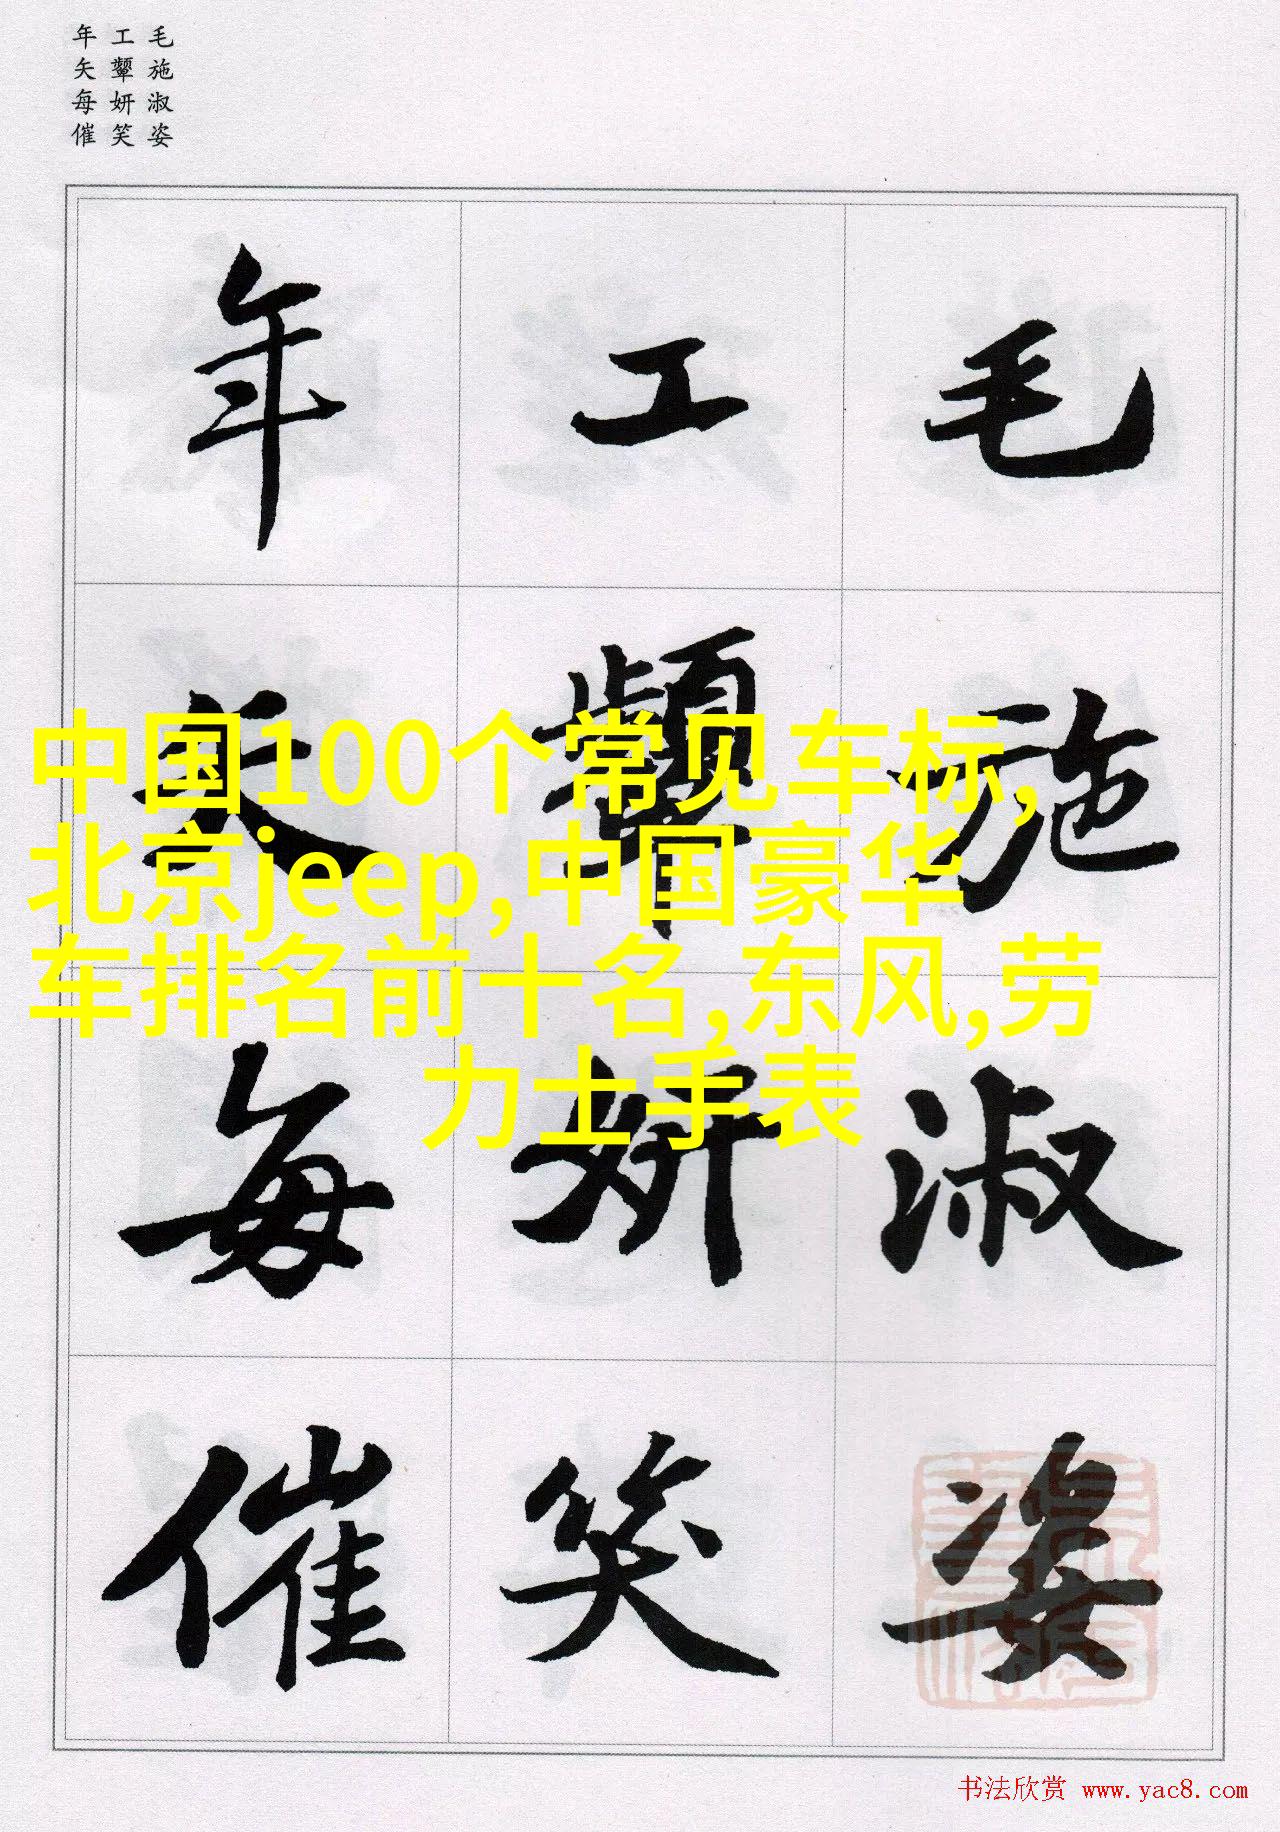 年工毛
矢颦施
每妍淑
催笑姿
年工毛
矢颦施
每妍淑
催笑姿
中国100个常见车标,
北京jeep,中国豪华
车排名前十名,东风,劳
力士手表
书法欣赏 www.yac8.com